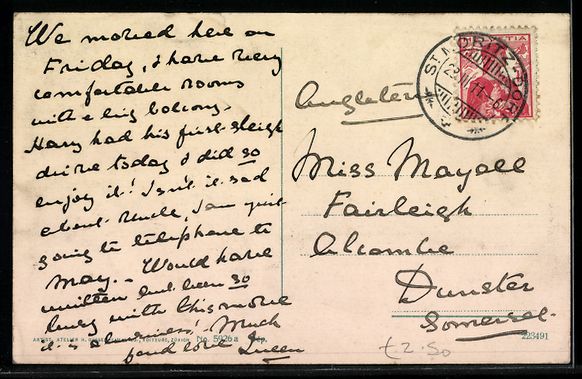 We moved here on
Friday, & have very
comfortable rooms
with a big balcony.
Harry had his first sleigh
drive today & did so
enjoy it! Isn't it sad
about Uncle, I am just
going to telephone to
May. - Would have
written but been so
busy with this move
it is a business! Much
fond love Queen
Angleterre
Miss Mayall
Fairleigh
Alcombe
Dunster
Somerset.
ST. MORITZ-DORF
HELVETIA
No. 5926a
223491
£2.50